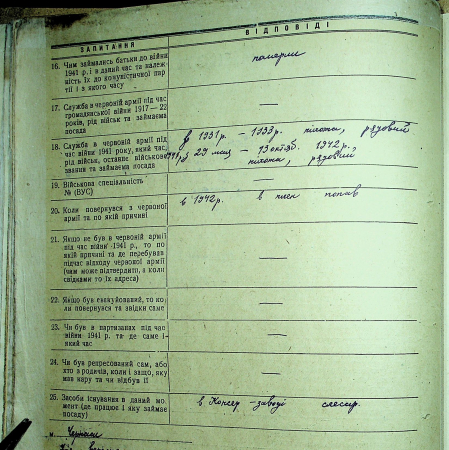 ЗАПИТАННЯ
ВІДПОВІДІ
16. Чим займались батьки до війни
1941 р. і в даний час та належ-
ність їх до комуністичної пар
тії і з якого часу
померли
17. Служба в червоній армії під час
громадянської війни 1917—22
років, рід військ та займаєма
посада
—
18. Служба в червоній армії
під час війни 1941 року, який час,
рід військ, останнє військове
звання та займаєма посада
з 1931 р. — 1933 р. піхота, рядовий
1941 р. 29 мая — 13 октяб. 1942 р.
піхота, рядовий
19. Військова спеціальність
№ (ВУС)
—
20. Коли повернувся з червоної
армії та по якій причині
в 1942 р. в плен попав
21. Якщо не був в червоній армії
під час війни 1941 р., то по
якій причині та де перебував
підчас відходу червоної армії
(чим може підтвердити, а коли
свідками то їх адреса)
—
22. Якщо був евакуйований, то ко
ли повернувся та звідки саме
—
23. Чи був в партизанах під час
війни 1941 р. та де саме і
який час
—
24. Чи був репресований сам, або
хто з родичів, коли і защо, яку
мав кару та чи відбув її
—
25. Засоби існування в даний мо
мент (де працює і яку займає
посаду)
в Консер. заводі слесар.
м.